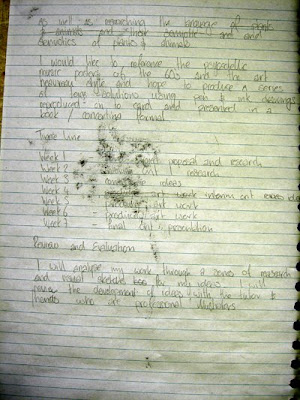 as well as researching the language of plants
& animals and their semiotic and and
semiotics of plants & animals
I would like to reference the psycadellic
music posters of the 60s and the art
neuveau style and hope to produce a series
of four solutions using pen & ink drawings
reproduced on to card and presented in a
book / concertina format
Time Line
Week 1 - proposal and research
Week 2 - research
Week 3 - ideas
Week 4 - work interim crit ideas
Week 5 - art work
Week 6 - producing art work
Week 7 - Final crit & presentation
Review and Evaluation
I will analyse my work through a series of research
and visual sketch for my ideas. I will
review the development of ideas with the tutor &
friends who are professional illustrators